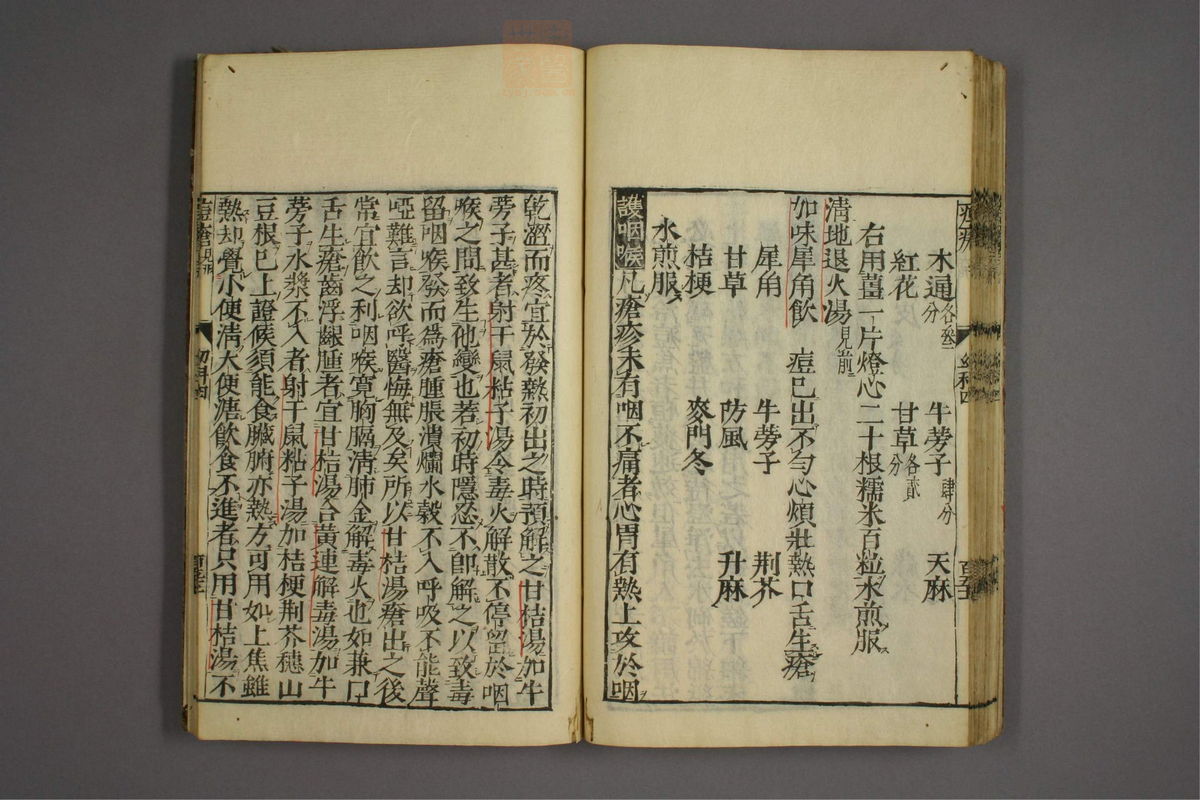 木通各叁分 牛蒡子肆分 天麻
紅花 甘草各貳分
右用薑一片燈心二十根糯米百粒水煎服
清地退火湯見前
加味犀角飲 痘已出不勻心煩壯熱口舌生瘡
犀角 牛蒡子 荆芥
甘草 防風 升麻
桔梗 麥門冬
水煎服
護咽喉凡瘡疹未有咽不痛者心胃有熱上攻於咽
乾澀而疼宜於發熱初出之時預解之甘桔湯加牛
蒡子甚者射干鼠粘子湯令毒火解散不停留於咽
喉之間致生他變也若初時隱忍不卽解之以致毒
留咽喉發而爲瘡腫脹潰爛水穀不入呼吸不能聲
啞難言却欲呼醫悔無及矣所以甘桔湯瘡出之後
常宜飲之利咽喉寬胸膈清肺金解毒火也如兼口
舌生瘡齒浮齦腫者宜甘桔湯合黃連解毒湯加牛
蒡子水漿不入者射干鼠粘子湯加桔梗荆芥穗山
豆根已上證候須能食臟腑亦熱方可用如上焦雖
熱却覺小便淸大便溏飲食不進者只用甘桔湯不
幼科四